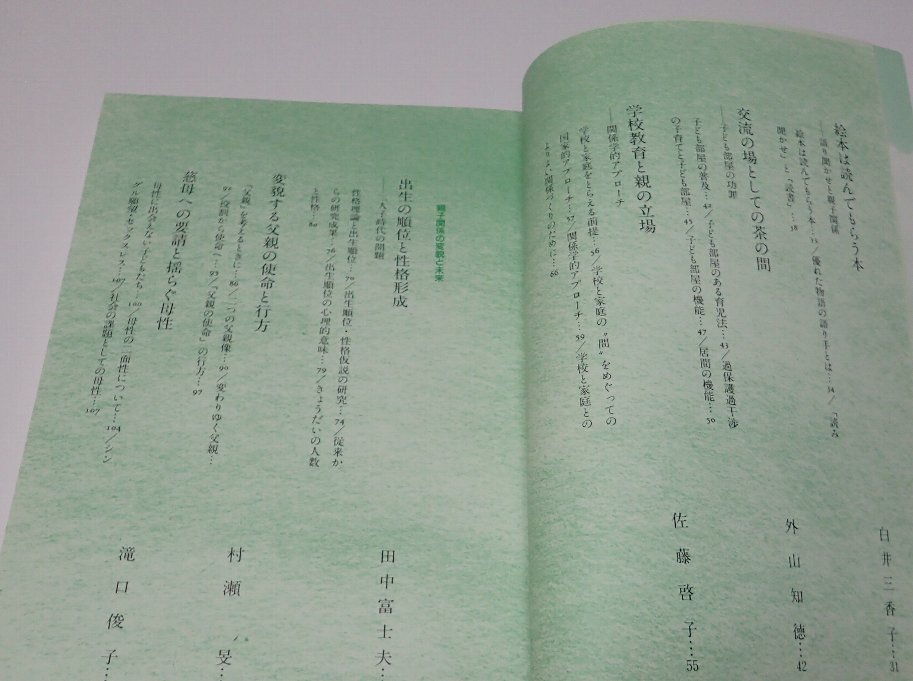 絵本は読んでもらう本
――語り聞かせと親子関係
絵本は読んでもらう本…33／優れた物語の語り手とは…34／「読み
聞かせ」と「読書」…38
白井三香子…31
交流の場としての茶の間
――子ども部屋の功罪
子ども部屋の普及…42／子ども部屋のある育児法…43／過保護過干渉
の子育てと子ども部屋…45／子ども部屋の機能…47／居間の機能…50
外山知徳…42
学校教育と親の立場
――関係学的アプローチ
学校と家庭をとらえる前提…56／学校と家庭の〝間〟をめぐっての
国家的アプローチ…57／関係学的アプローチ…59／学校と家庭との
よりよい関係づくりのために…66
佐藤啓子…55
親子関係の変貌と未来
出生の順位と性格形成
――一人っ子時代の問題
性格理論と出生順位…70／出生順位・性格仮説の研究…74／従来か
らの研究成果…76／出生順位の心理的意味…79／きょうだいの人数
と性格…80
田中富士夫…
変貌する父親の使命と行方
「父親」を考えるときに…86／二つの父親像…90／変わりゆく父親…
92／役割から使命へ…93／「父親の使命」の行方…97
村瀬旻…
慈母への要請と揺らぐ母性
母性に出会えない子どもたち…100／母性の二面性について…104／シン
グル願望・セックスレス…107／社会の課題としての母性…107
滝口俊子…